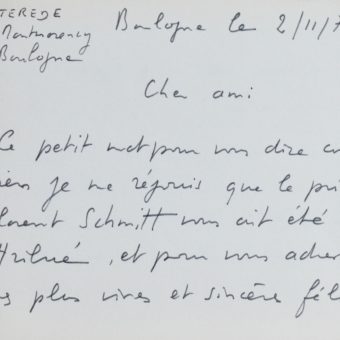 TEREDE
Montmorency
Boulogne
Boulogne le 2/11/7
Cher ami
Ce petit mot pour vous dire co
ien je me réjouis que le pri
lorent Schmitt vous ait été
ttribué, et pour vous adres
es plus vives et sincères fél